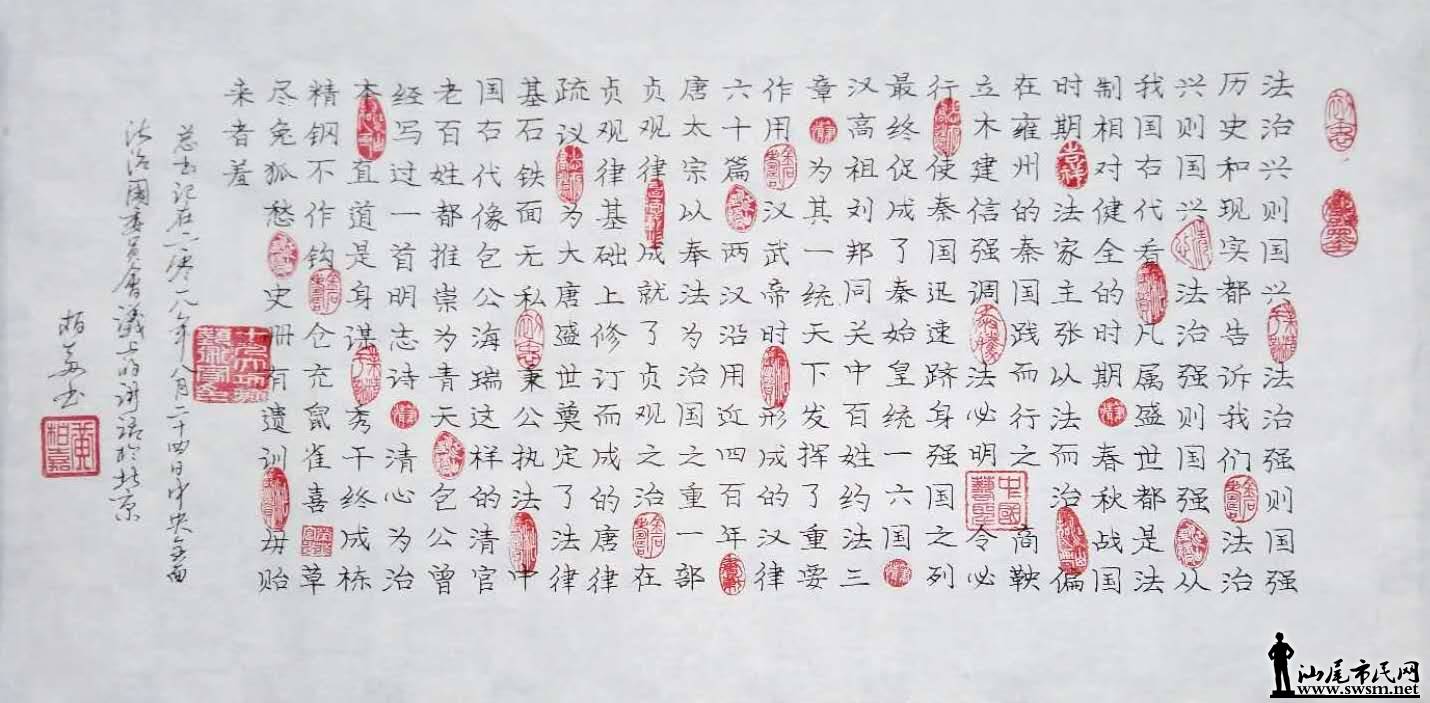 法治兴则国兴法治强则国强
历史和现实都告诉我们法治
兴则国兴法治强则国强从
我国古代看凡属盛世都是法
制相对健全的时期春秋战国
时期吉祥法家主张以法而治偏
在雍州的秦国践而行之商鞅
立木建信强调法必明令必
行使秦国迅速跻身强国之列
最终促成了秦始皇统一六国
汉高祖刘邦同关中百姓约法三
章为其一统天下发挥了重要
作用汉武帝时形成的汉律
六十篇两汉沿用近四百年
唐太宗以奉法为治国之重一部
贞观律成就了贞观之治在
贞观律基础上修订而成的唐律
疏议为大唐盛世奠定了法律
基石铁面无私秉公执法中
国古代像包公海瑞这样的清官
老百姓都推崇为青天包公曾
经写过一首明志诗清心为治
本直道是身谋秀干终成栋
精钢不作钩仓充鼠雀喜草
尽兔狐愁史册有遗训毋贻
来者羞
总书记在二零一八年八月二十四日中央全面
法治國委員會議上的讲话於北京
柏嘉书
黄柏嘉
汕尾市民网
www.swsm.net